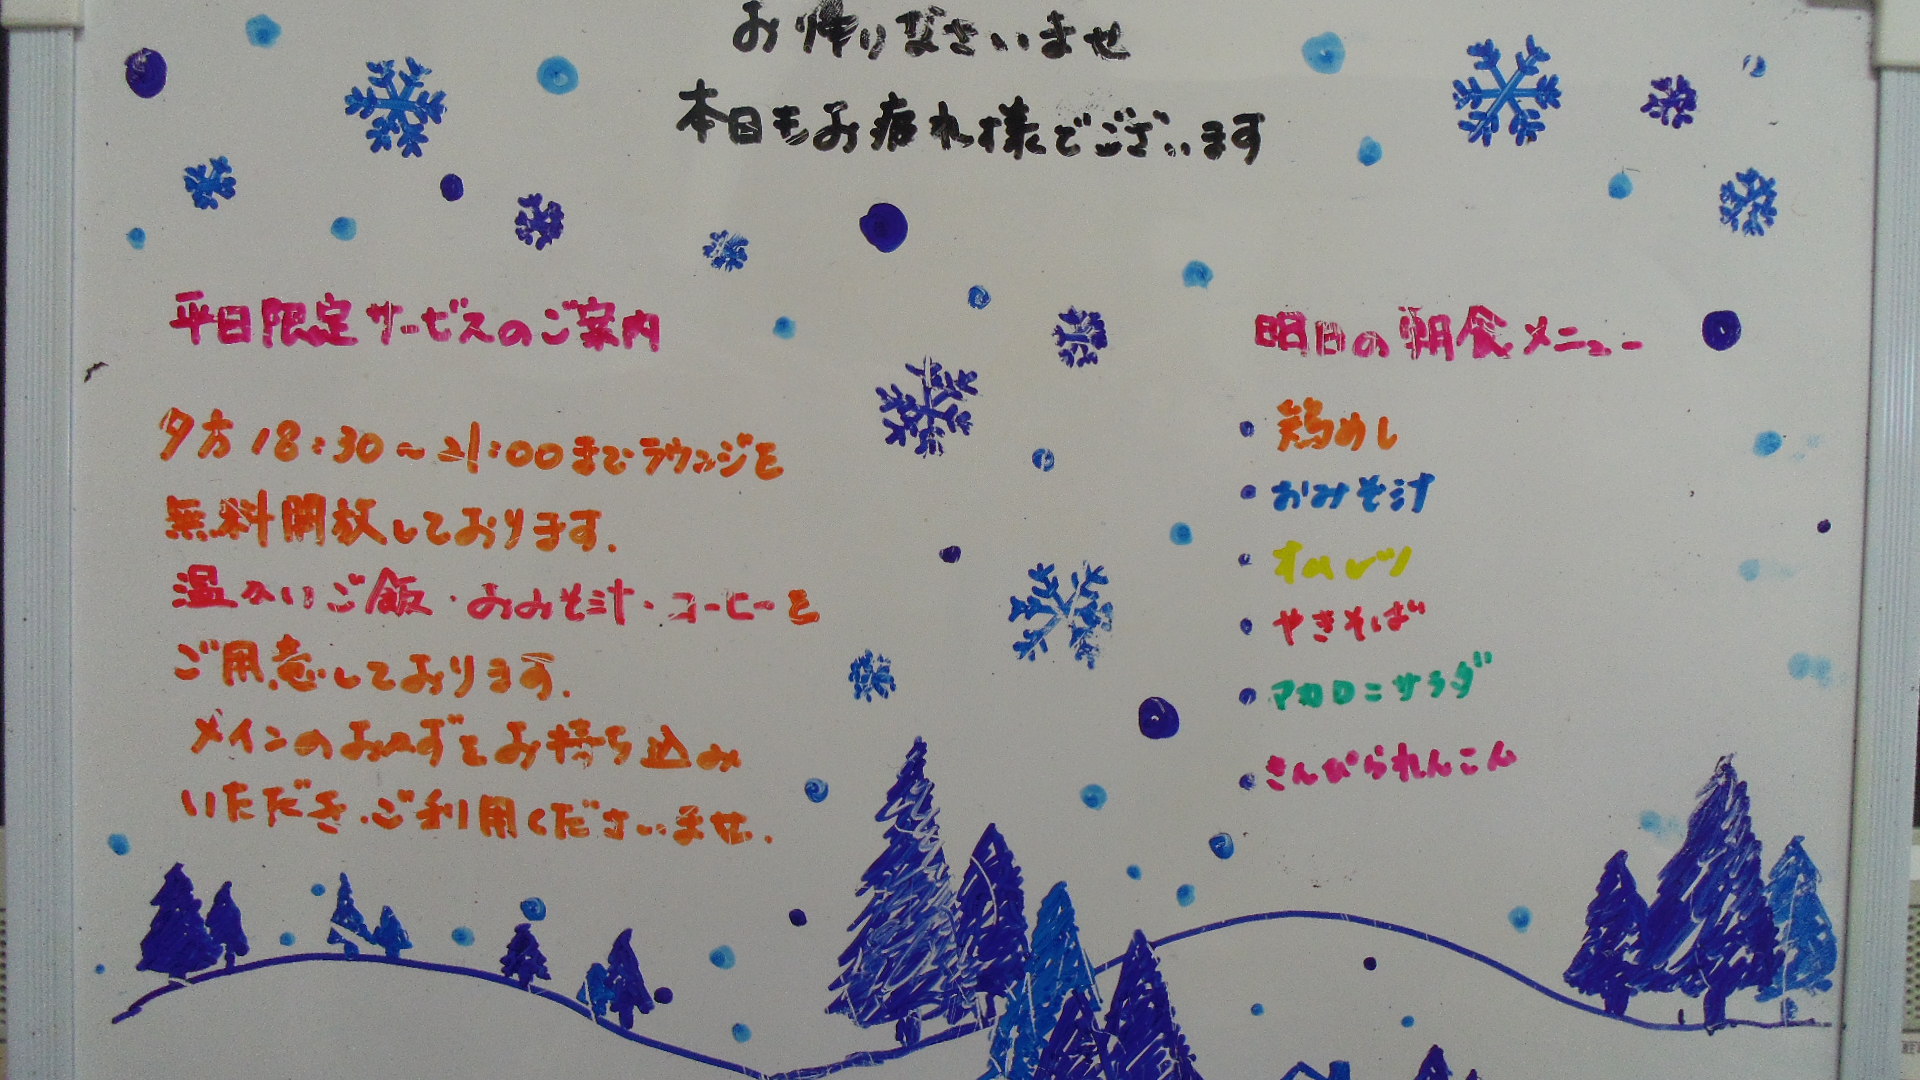 お帰りなさいませ
本日もお疲れ様でございます
平日限定サービスのご案内
夕方18:30～21:00までラウンジを
無料開放しております.
温かいご飯・おみそ汁・コーヒーを
ご用意しております.
メインのおかずをお持ち込み
いただき.ご利用くださいませ.
明日の朝食メニュー
・鶏めし
・おみそ汁
・オムレツ
・やきそば
・マカロニサラダ
・きんぴられんこん